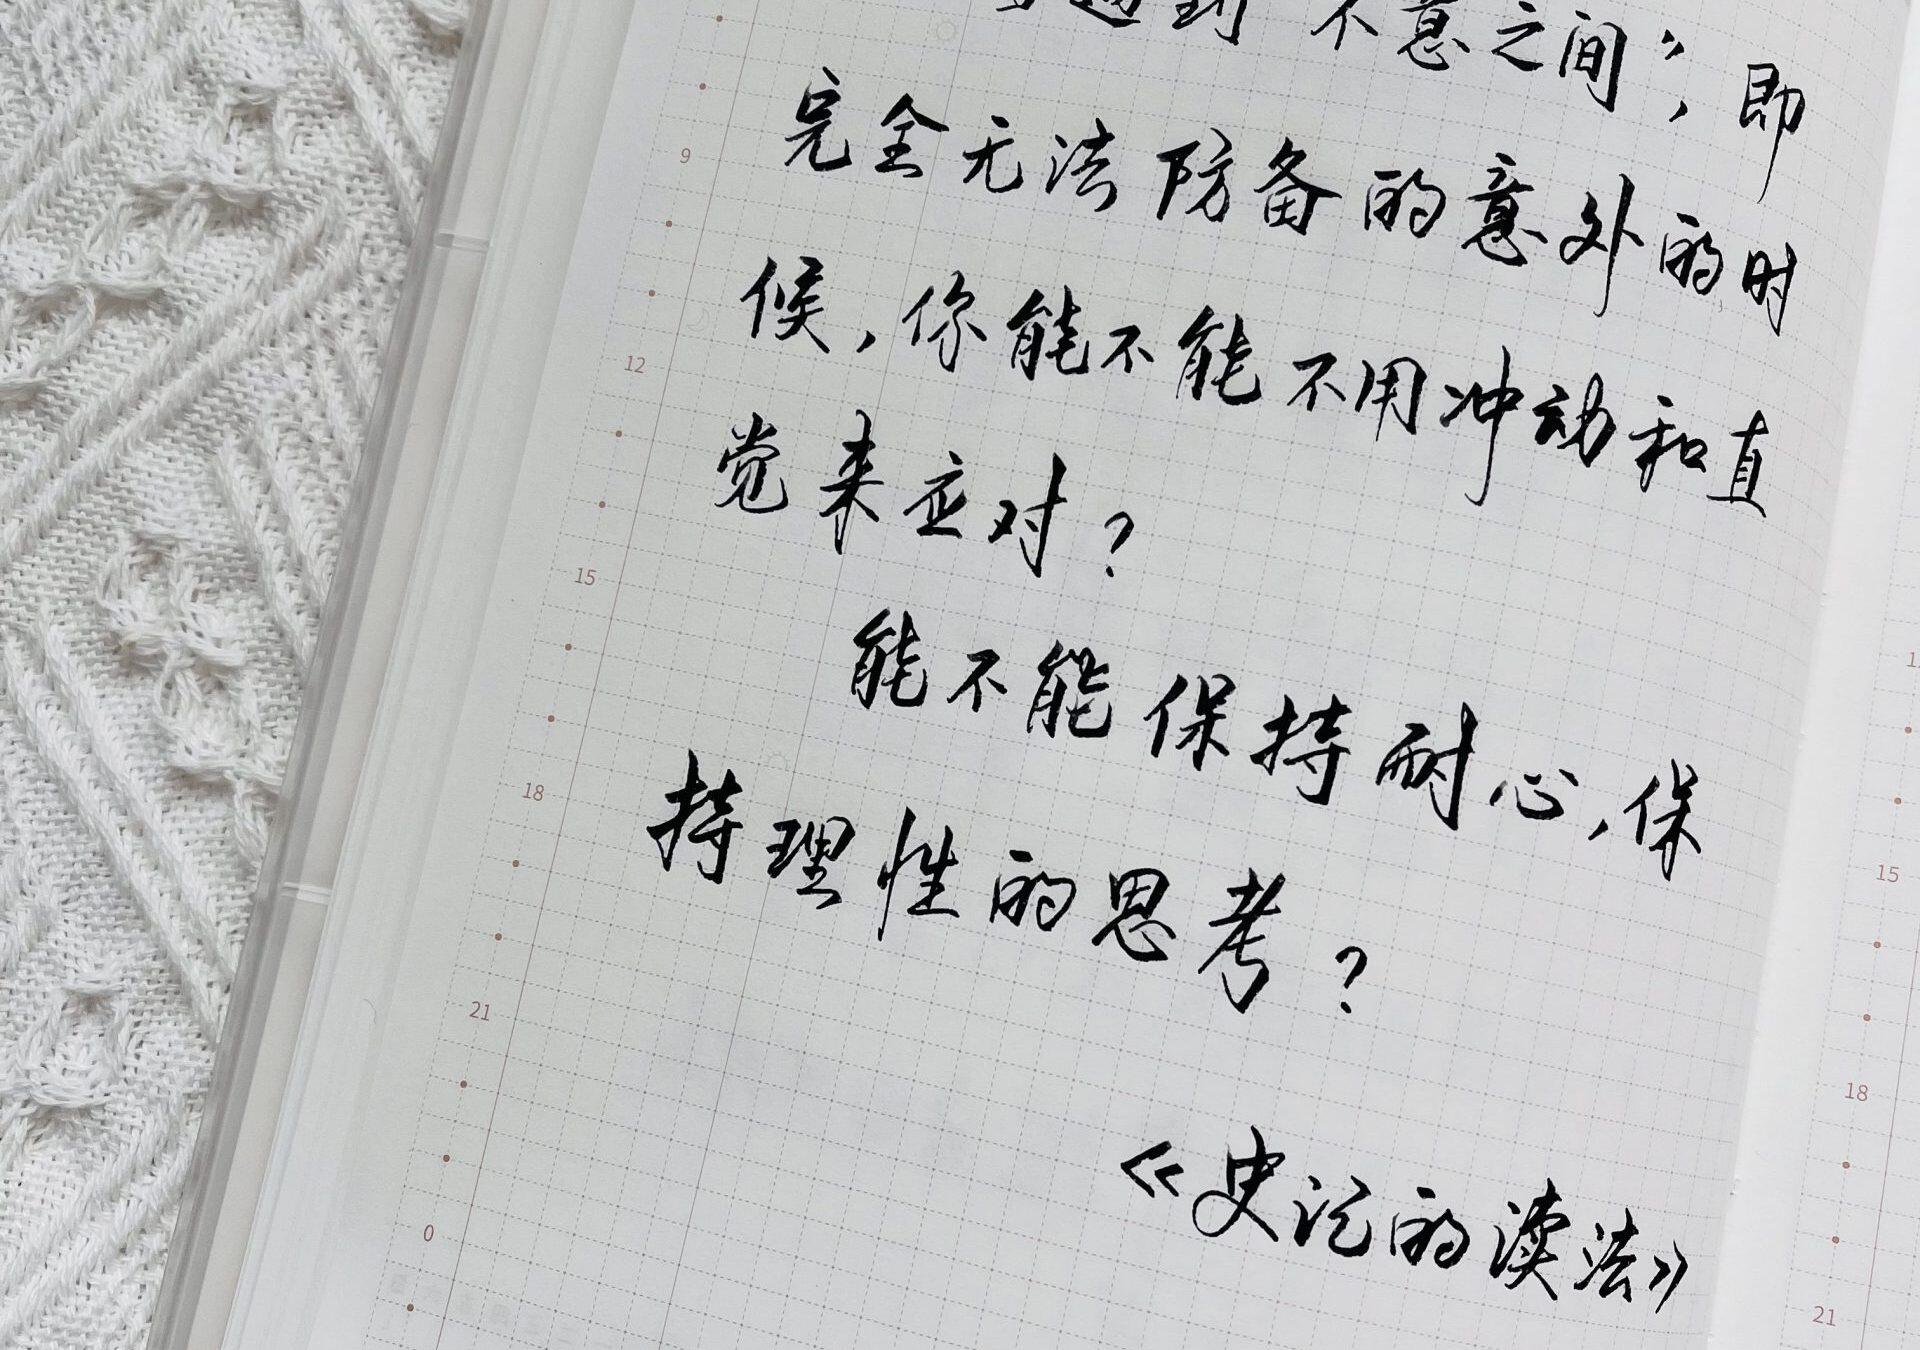 遇到"不意之间"，即
完全无法防备的意外的时
候，你能不能不用冲动和直
觉来应对？
能不能保持耐心，保
持理性的思考？
《史记的读法》
9
12
15
18
21
0
15
18
21